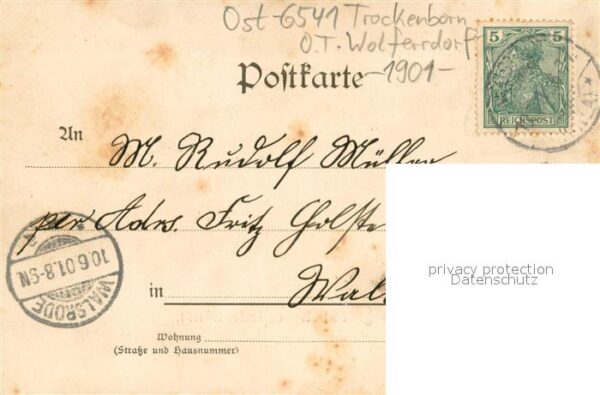 Ost-6541 Trockenborn
O.T. Wolfersdorf
Postkarte -1901-
5 5
REICHSPOST
An
M. Rudolf Müller
per Adrs. Fritz Holste
in Wal
Wohnung
(Straße und Hausnummer)
WALSRODE
10.6.01.8-9N
privacy protection
Datenschutz